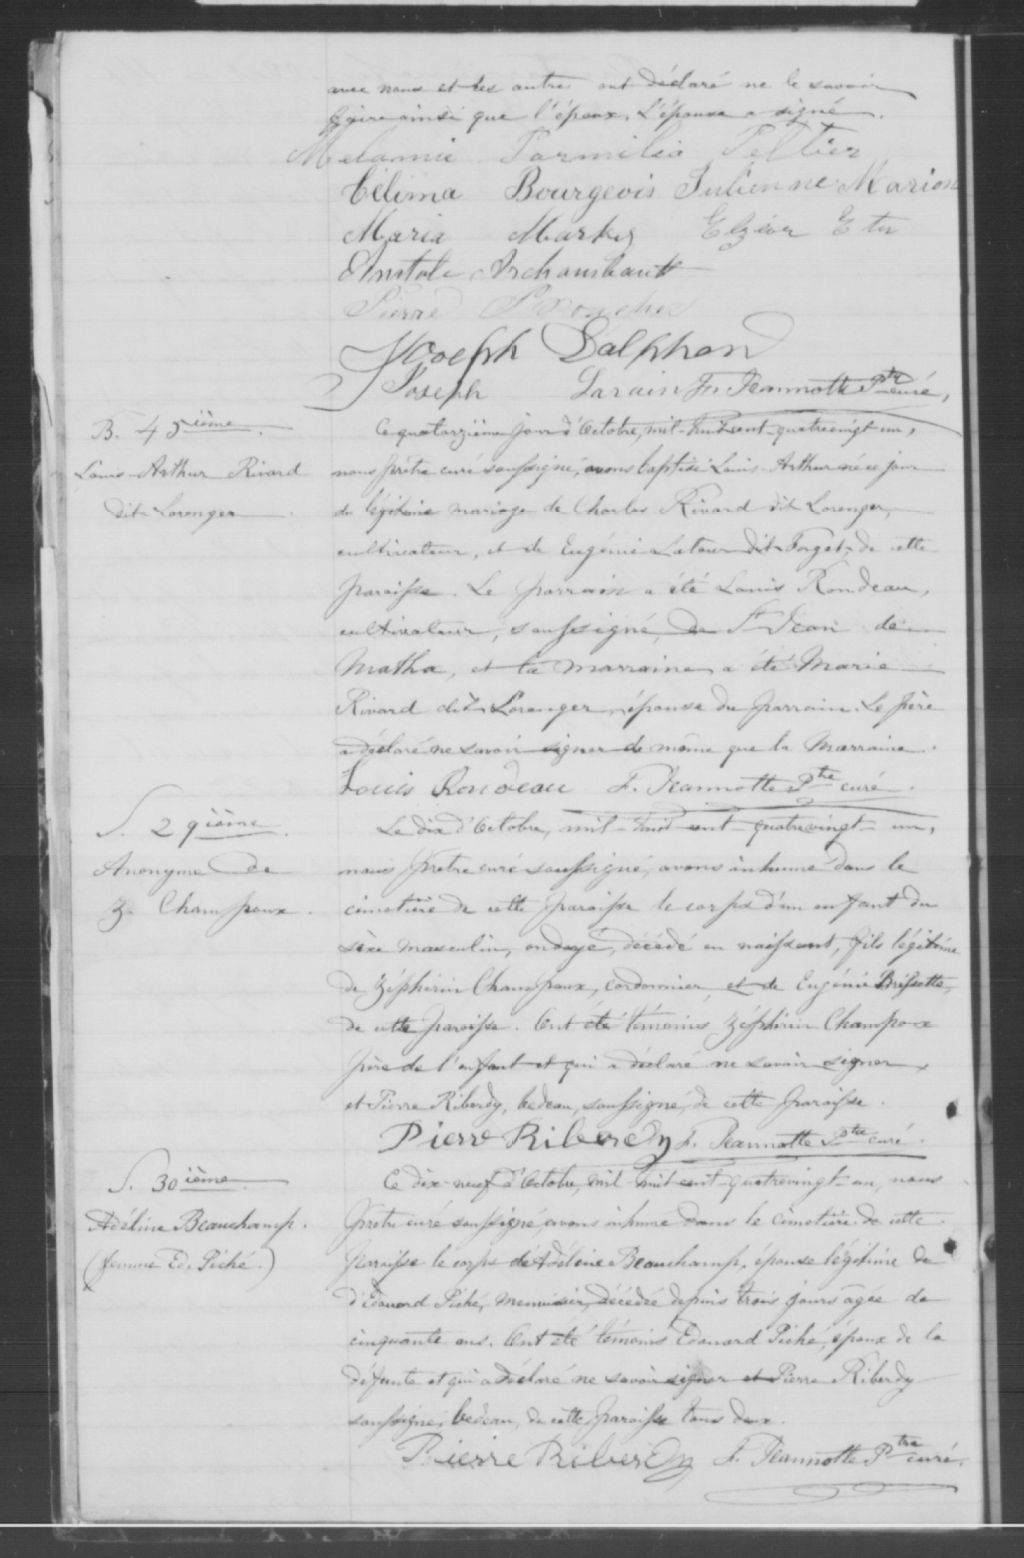 avec nous et les autres ont déclaré ne le savoir
faire ainsi que l'époux. L'épouse a signé.
Melannie Parmilia Peltier
Célima Bourgeois Julienne Marion
Maria Markey Elzéar
Anatole Archambault
Pierre
Joseph Dalphon
Joseph F. Jeannotte Ptre curé,
B. 45ième.
Louis-Arthur Rivard
dit Lorenger
Ce quatorzième jour d'Octobre, mil-huit-cent-quatrevingt-un,
nous prêtre curé soussigné, avons baptisé Louis-Arthur né ce jour
du légitime mariage de Charles Rivard dit Lorenger,
cultivateur, et de Eugénie Latour dit Forget, de cette
paroisse. Le parrain a été Louis Rondeau,
cultivateur, soussigné, de St Jean de
Matha, et la marraine a été Marie
Rivard dit Lorenger, épouse du parrain. Le père
a déclaré ne savoir signer de même que la Marraine.
Louis Rondeau F. Jeannotte Ptre curé.
S. 29ième.
Anonyme de
Z. Champoux.
Le dix d'Octobre, mil-huit-cent-quatrevingt-un,
nous prêtre curé soussigné, avons inhumé dans le
cimetière de cette paroisse le corps d'un enfant du
sèxe masculin, ondoyé, décédé en naissant, fils légitime
de Zéphirin Champoux, cordonnier, et de Eugénie Brissette,
de cette paroisse. Ont été témoins Zéphirin Champoux
père de l'enfant et qui a déclaré ne savoir signer,
et Pierre Riberdy, bedeau, soussigné, de cette paroisse.
Pierre Riberdy F. Jeannotte Ptre curé.
S. 30ième.
Adéline Beauchamp.
(femme Ed. Piché.)
Ce dix-neuf d'Octobre, mil-huit-cent-quatrevingt-un, nous
prêtre curé soussigné, avons inhumé dans le cimetière de cette
paroisse le corps de Adéline Beauchamp, épouse légitime de
d'Edouard Piché, menuisier, décédée depuis trois jours agée de
cinquante ans. Ont été témoins Edouard Piché, époux de la
défunte et qui a déclaré ne savoir signer et Pierre Riberdy
soussigné, bedeau, de cette paroisse tous deux.
Pierre Riberdy F. Jeannotte Ptre curé.